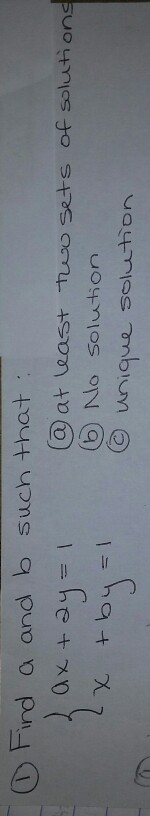 ① Find a and b such that :
{ ax + 2y = 1
x + by = 1
ⓐ at least two sets of solutions
ⓑ No solution
ⓒ unique solution